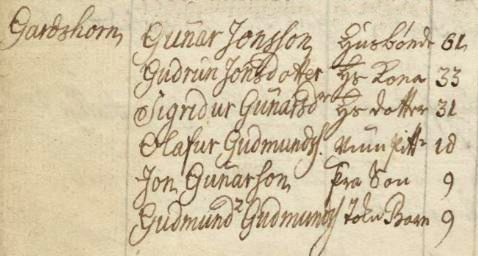 Gardshorn Gunar Jonsson Husbónde 61
Gudrun Jonsdotter Hs Kona 33
Sigridur Gunarsdr Hs dotter 31
Olafur Gudmunds. 18
Jon Gunarson Son 9
Gudmundr Gudmunds Barn 9